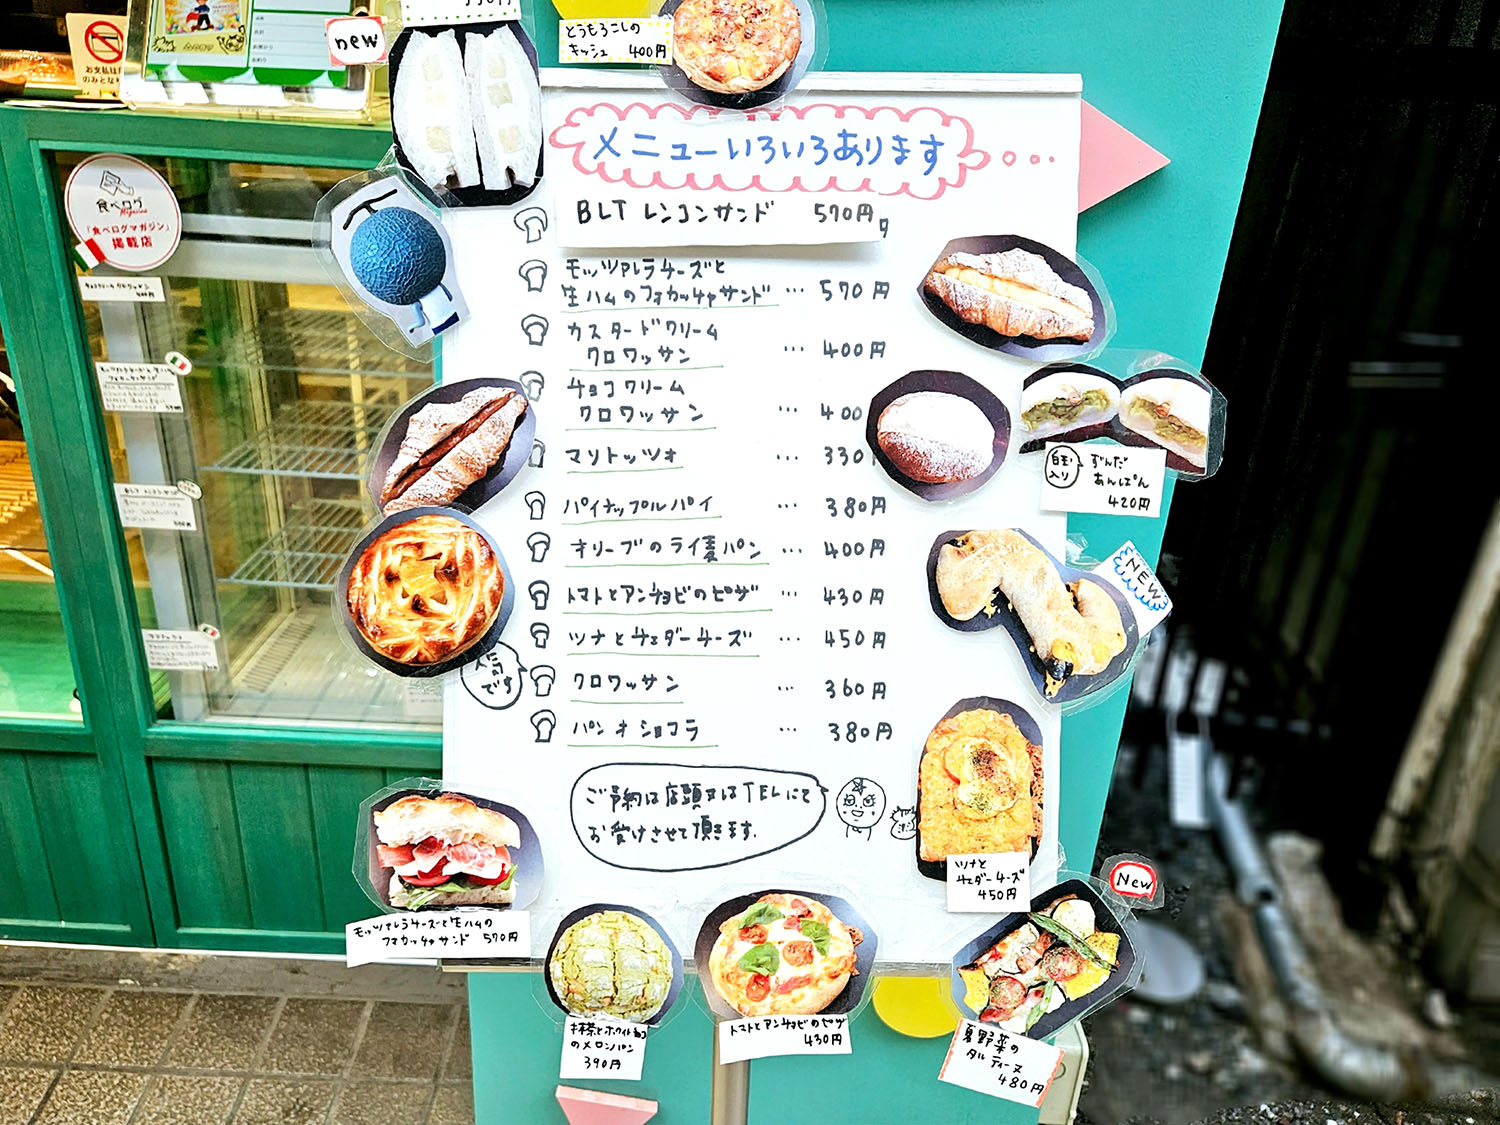 new
お支払は
食べログ
Magazine
「食べログマガジン」
掲載店
とうもろこしの
キッシュ 400円
メニューいろいろあります
BLT レンコンサンド 570円
モッツァレラチーズと
生ハムのフォカッチャサンド … 570円
カスタードクリーム
クロワッサン … 400円
チョコクリーム
クロワッサン … 400
マリトッツォ … 330
パイナップルパイ … 380円
オリーブのライ麦パン … 400円
トマトとアンチョビのピザ … 430円
ツナとチェダーチーズ … 450円
クロワッサン … 360円
パンオショコラ … 380円
人気
です
ご予約は店頭又はTELにて
お受けさせて頂きます.
白玉
入り
ずんだ
あんぱん
420円
NEW
ツナと
チェダーチーズ
450円
New
モッツァレラチーズと生ハムの
フォカッチャサンド 570円
抹茶とホワイトチョコ
のメロンパン
390円
トマトとアンチョビのピザ
430円
夏野菜の
タルティーヌ
480円